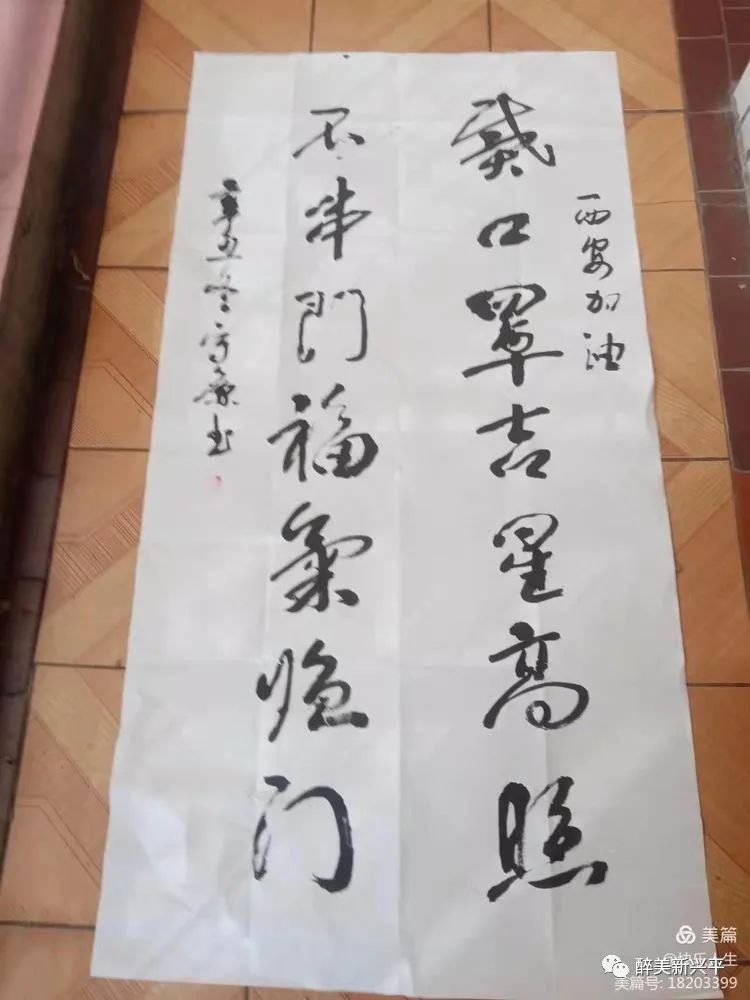 西安加油
戴口罩吉星高照
不串门福气临门
辛丑冬守康书
美篇
@快乐人生
醉美新兴平
美篇号: 18203399